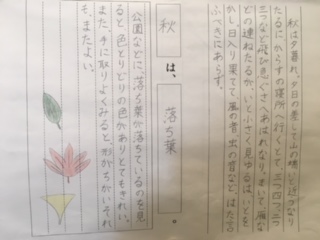 秋は夕暮れ。夕日の差して山の端いと近うなり
たるに、からすの寝所へ行くとて、三つ四つ、二つ
三つなど、飛び急ぐさへあはれなり。まいて、雁な
どの連ねたるが、いと小さく見ゆるはいとを
かし。日入り果てて、風の音、虫の音など、はた言
ふべきにあらず。
秋は、落ち葉。
公園などに落ち葉が落ちているのを見
ると、色とりどりの色がありとてもきれい。
また、手に取りよくみると、形がちがいそれ
も、またよい。